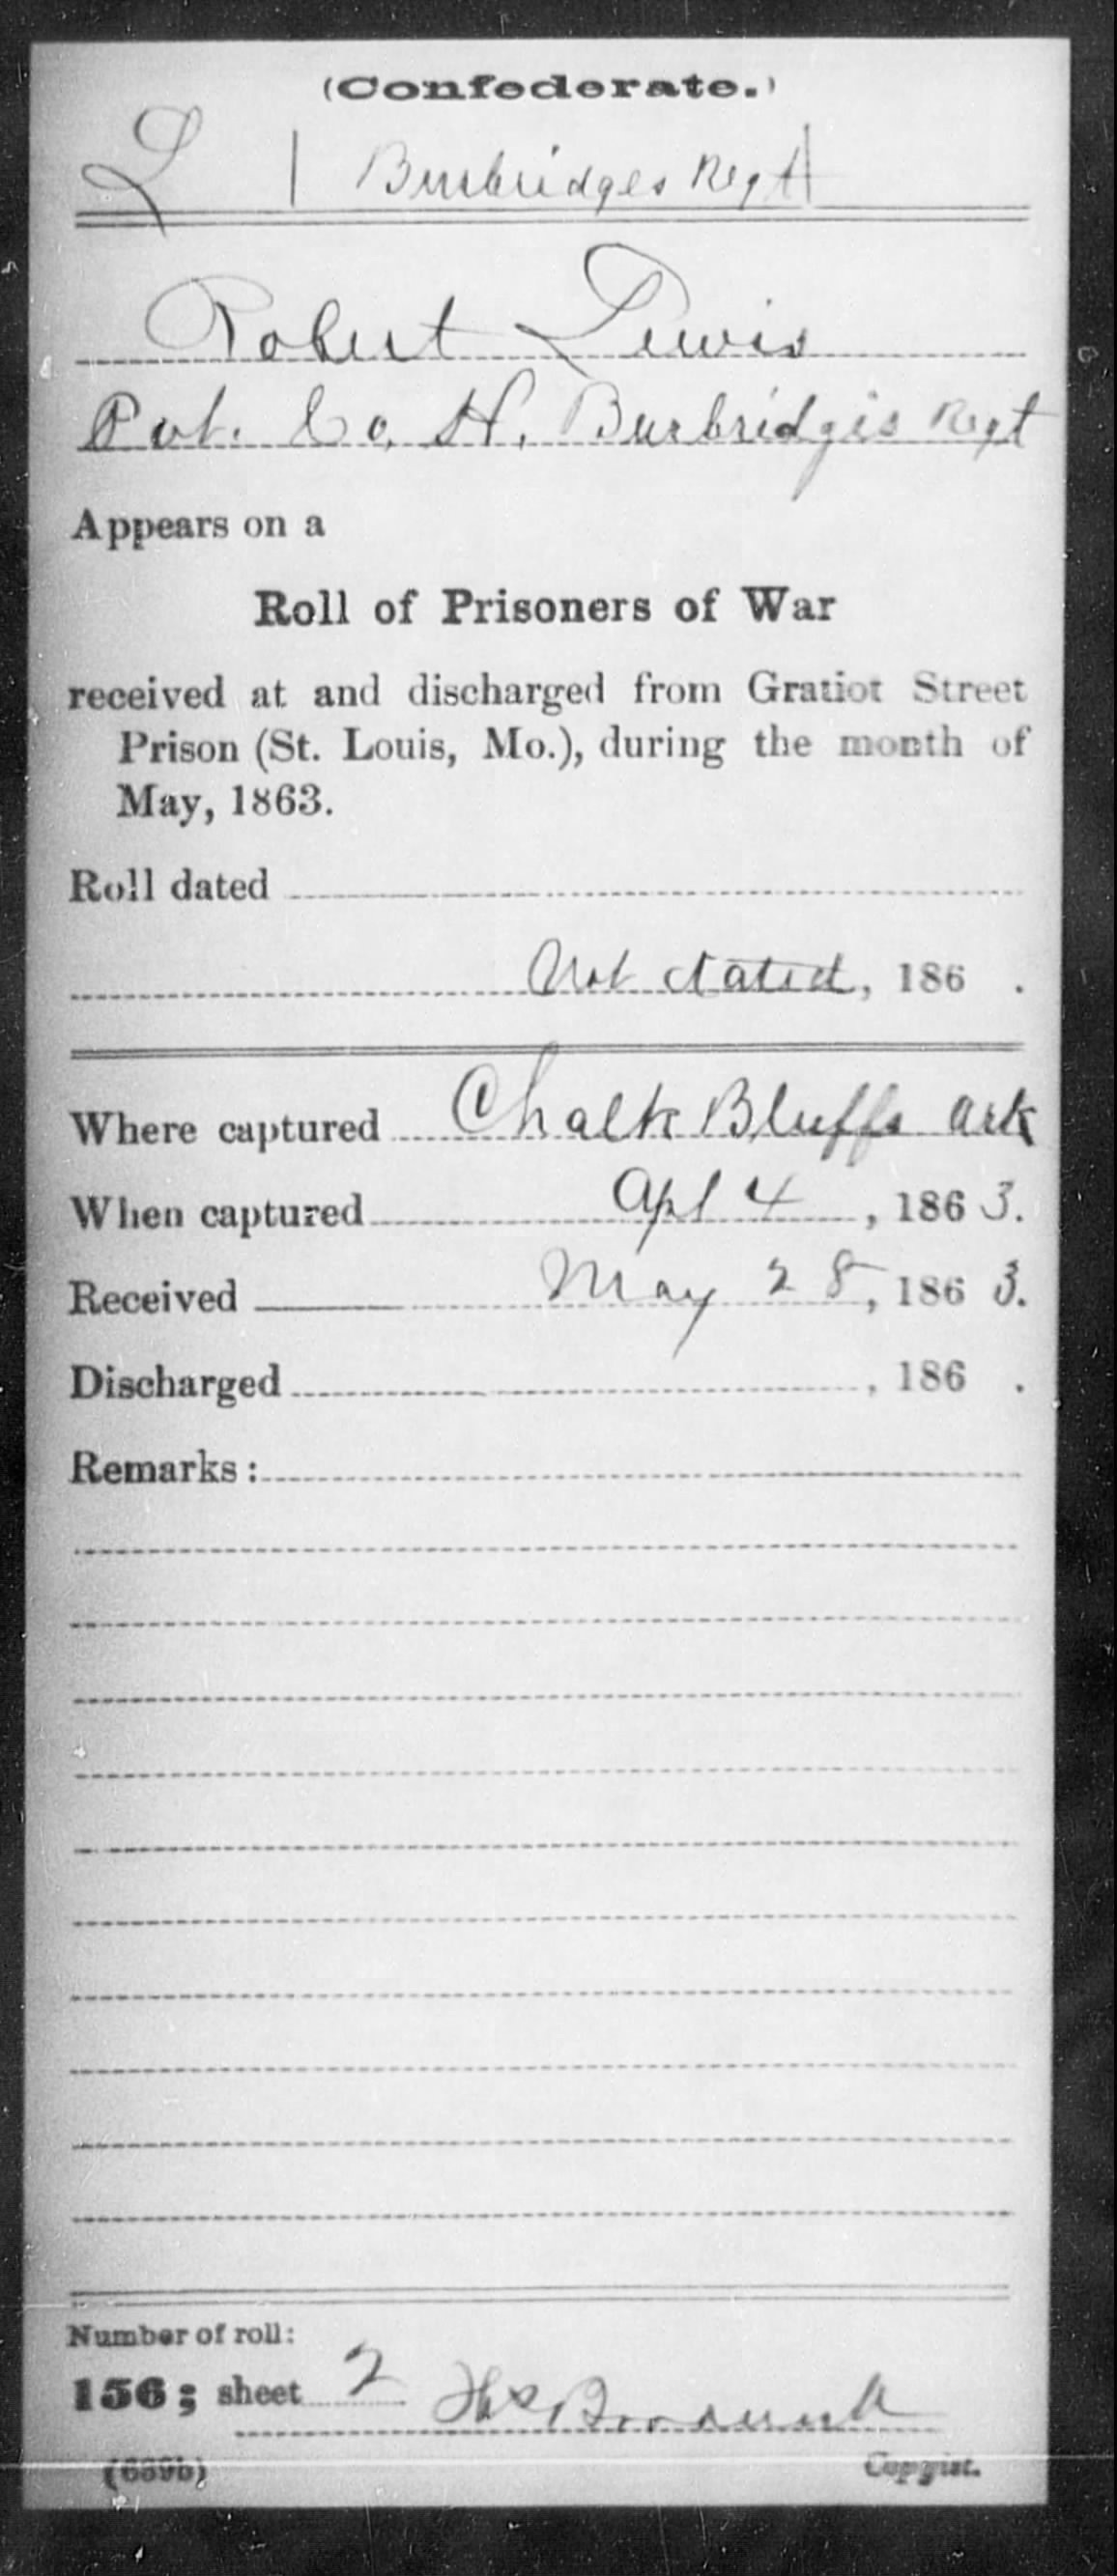 (Confederate.)
L | Burbridges Regt |
Robert Lewis
Pvt. Co. H. Burbridges Regt
Appears on a
Roll of Prisoners of War
received at and discharged from Gratiot Street
Prison (St. Louis, Mo.), during the month of
May, 1863.
Roll dated
Not dated, 186 .
Where captured Chalk Bluffs Ark
When captured Apl 4, 1863.
Received May 28, 1863.
Discharged , 186 .
Remarks:
Number of roll:
156; sheet 2
(639b) Copyist.